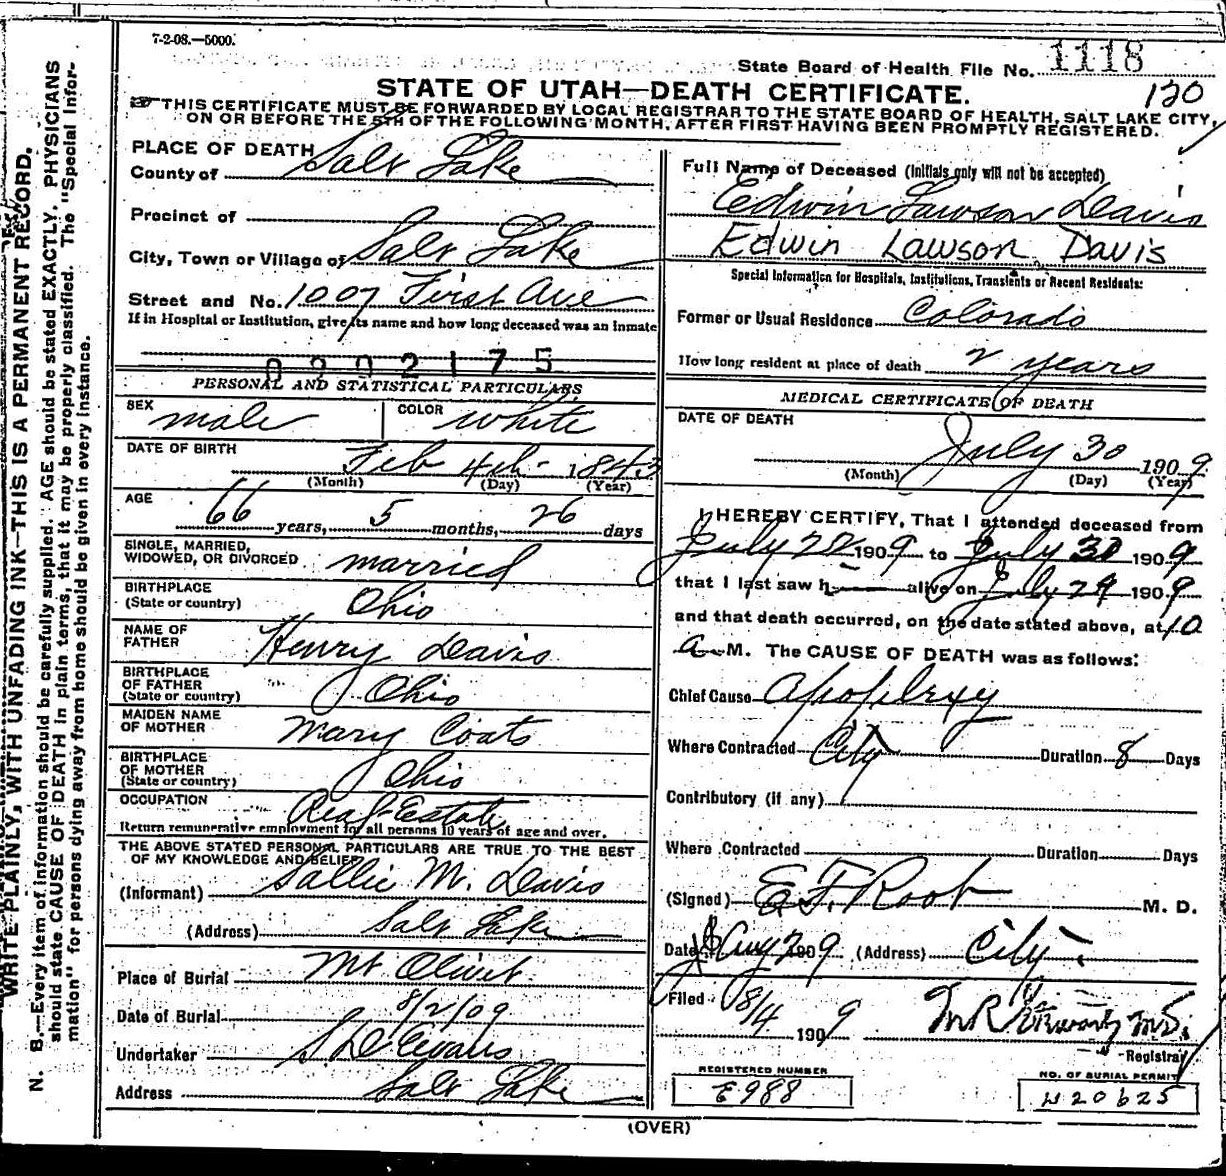 7-2-08.—5000.
State Board of Health File No. 1118
STATE OF UTAH—DEATH CERTIFICATE.
120
THIS CERTIFICATE MUST BE FORWARDED BY LOCAL REGISTRAR TO THE STATE BOARD OF HEALTH, SALT LAKE CITY,
ON OR BEFORE THE 5TH OF THE FOLLOWING MONTH, AFTER FIRST HAVING BEEN PROMPTLY REGISTERED.
WRITE PLAINLY, WITH UNFADING INK—THIS IS A PERMANENT RECORD.
N. B.—Every item of information should be carefully supplied. AGE should be stated EXACTLY. PHYSICIANS
should state CAUSE OF DEATH in plain terms, that it may be properly classified. The "Special Infor-
mation" for persons dying away from home should be given in every instance.
PLACE OF DEATH
County of Salt Lake
Precinct of
City, Town or Village of Salt Lake
Street and No. 1007 First Ave
If in Hospital or Institution, give its name and how long deceased was an inmate
0202175
PERSONAL AND STATISTICAL PARTICULARS
SEX male COLOR white
DATE OF BIRTH Feb 4th - 1843
(Month) (Day) (Year)
AGE 66 years, 5 months, 26 days
SINGLE, MARRIED,
WIDOWED, OR DIVORCED married
BIRTHPLACE
(State or country) Ohio
NAME OF
FATHER Henry Davis
BIRTHPLACE
OF FATHER
(State or country) Ohio
MAIDEN NAME
OF MOTHER Mary Coats
BIRTHPLACE
OF MOTHER
(State or country) Ohio
OCCUPATION Real Estate
Return remunerative employment for all persons 10 years of age and over.
THE ABOVE STATED PERSONAL PARTICULARS ARE TRUE TO THE BEST
OF MY KNOWLEDGE AND BELIEF
(Informant) Sallie M. Davis
(Address) Salt Lake
Place of Burial Mt Olivet
Date of Burial 8/2/09
Undertaker S D Evans
Address Salt Lake
Full Name of Deceased (Initials only will not be accepted)
Edwin Lawson Davis
Edwin Lawson Davis
Special Information for Hospitals, Institutions, Transients or Recent Residents:
Former or Usual Residence Colorado
How long resident at place of death 2 years
MEDICAL CERTIFICATE OF DEATH
DATE OF DEATH
July 30 1909
(Month) (Day) (Year)
I HEREBY CERTIFY, That I attended deceased from
July 22 1909 to July 30 1909
that I last saw h alive on July 29 1909
and that death occurred, on the date stated above, at 10
a M. The CAUSE OF DEATH was as follows:
Chief Cause Apoplexy
Where Contracted City Duration 8 Days
Contributory (if any)
Where Contracted Duration Days
(Signed) E. F. Root M. D.
Date Aug 2 1909 (Address) City
Filed 8/4 1909
Registrar
REGISTERED NUMBER
E988
NO. OF BURIAL PERMIT
20625
(OVER)